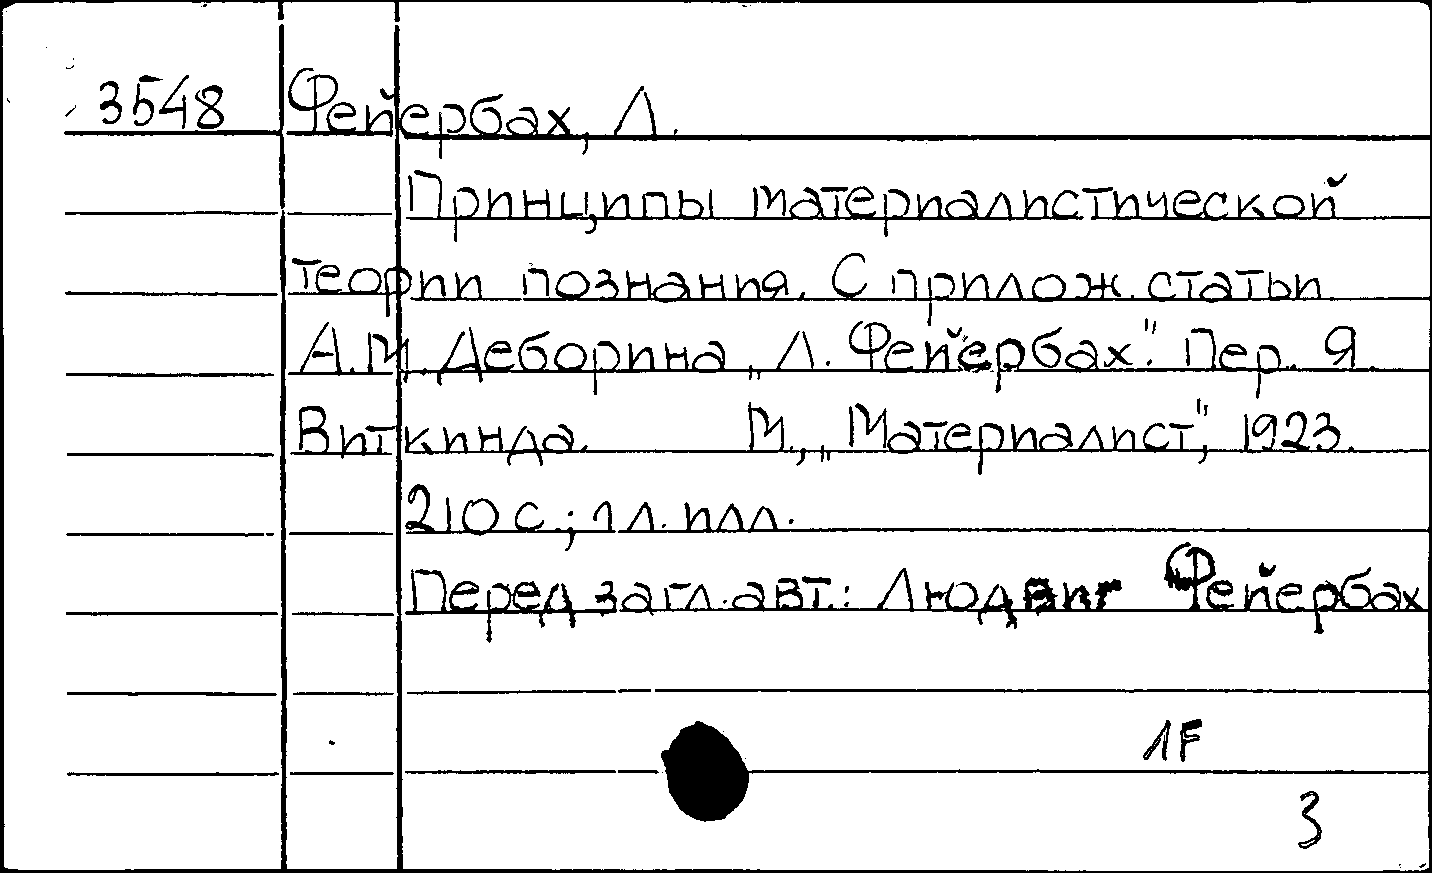 3548 Фейербах, Л.
Принципы материалистической
теории познания. С прилож. статьи
А.М. Деборина „Л. Фейербах". Пер. Я.
Виткинда. М., „Материалист", 1923.
210 с.; 1 л. илл.
Перед загл. авт.: Людвиг Фейербах
1F
3